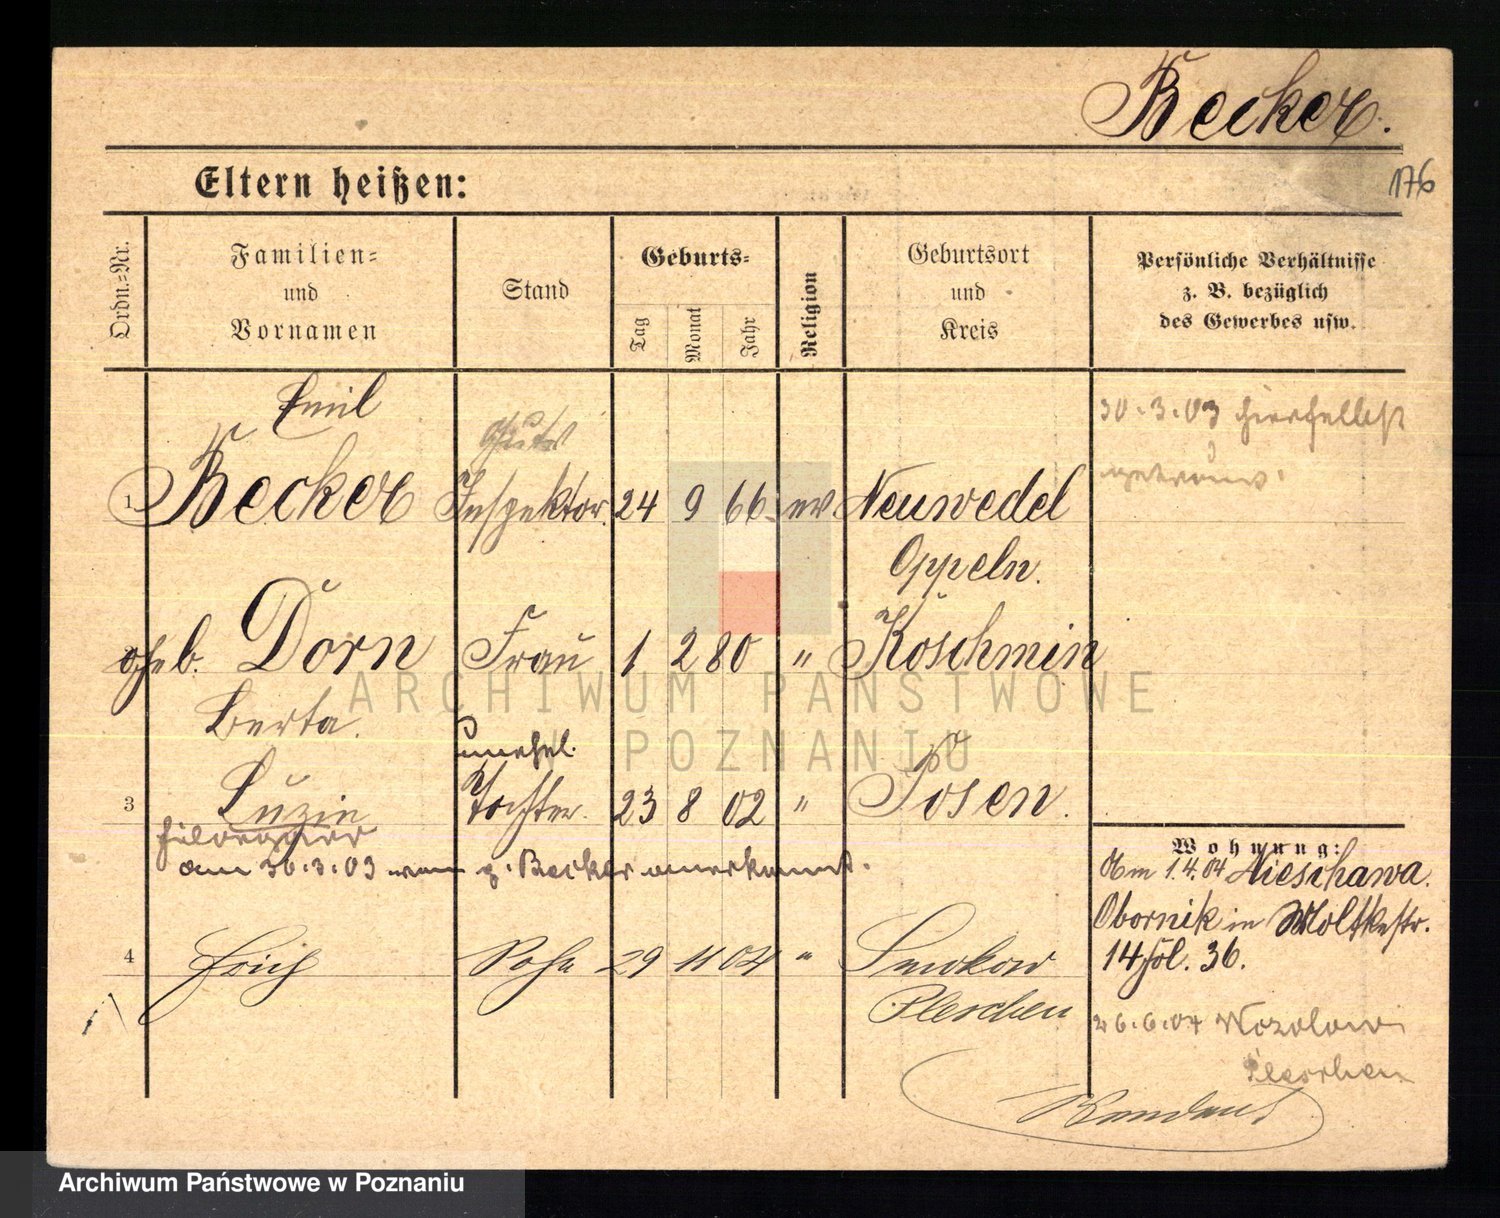 Becker.
176
Eltern heißen:
Ordn.-Nr.
Familien-
und
Vornamen
Stand
Geburts-
Tag
Monat
Jahr
Religion
Geburtsort
und
Kreis
Persönliche Verhältnisse
z. B. bezüglich
des Gewerbes usw.
Emil
Guts
30.3.03 hierselbst
getraut.
1 Becker Inspektor. 24 9 66. ev Neuwedel
Oppeln.
geb. Dorn Frau 1 2 80 " Koschmin
Berta.
unehel.
3 Luzie Tochter. 23 8 02 " Posen.
am 30.3.03 vom p. Becker anerkannt.
Wohnung:
Am 1.4.04 Nieschawa.
Obornik in Moltkestr.
14 fol. 36.
4 Erich Sohn 29 11 04 " Smokow
Pleschen
26.6.04
Pleschen
ARCHIWUM PAŃSTWOWE
W POZNANIU
Archiwum Państwowe w Poznaniu